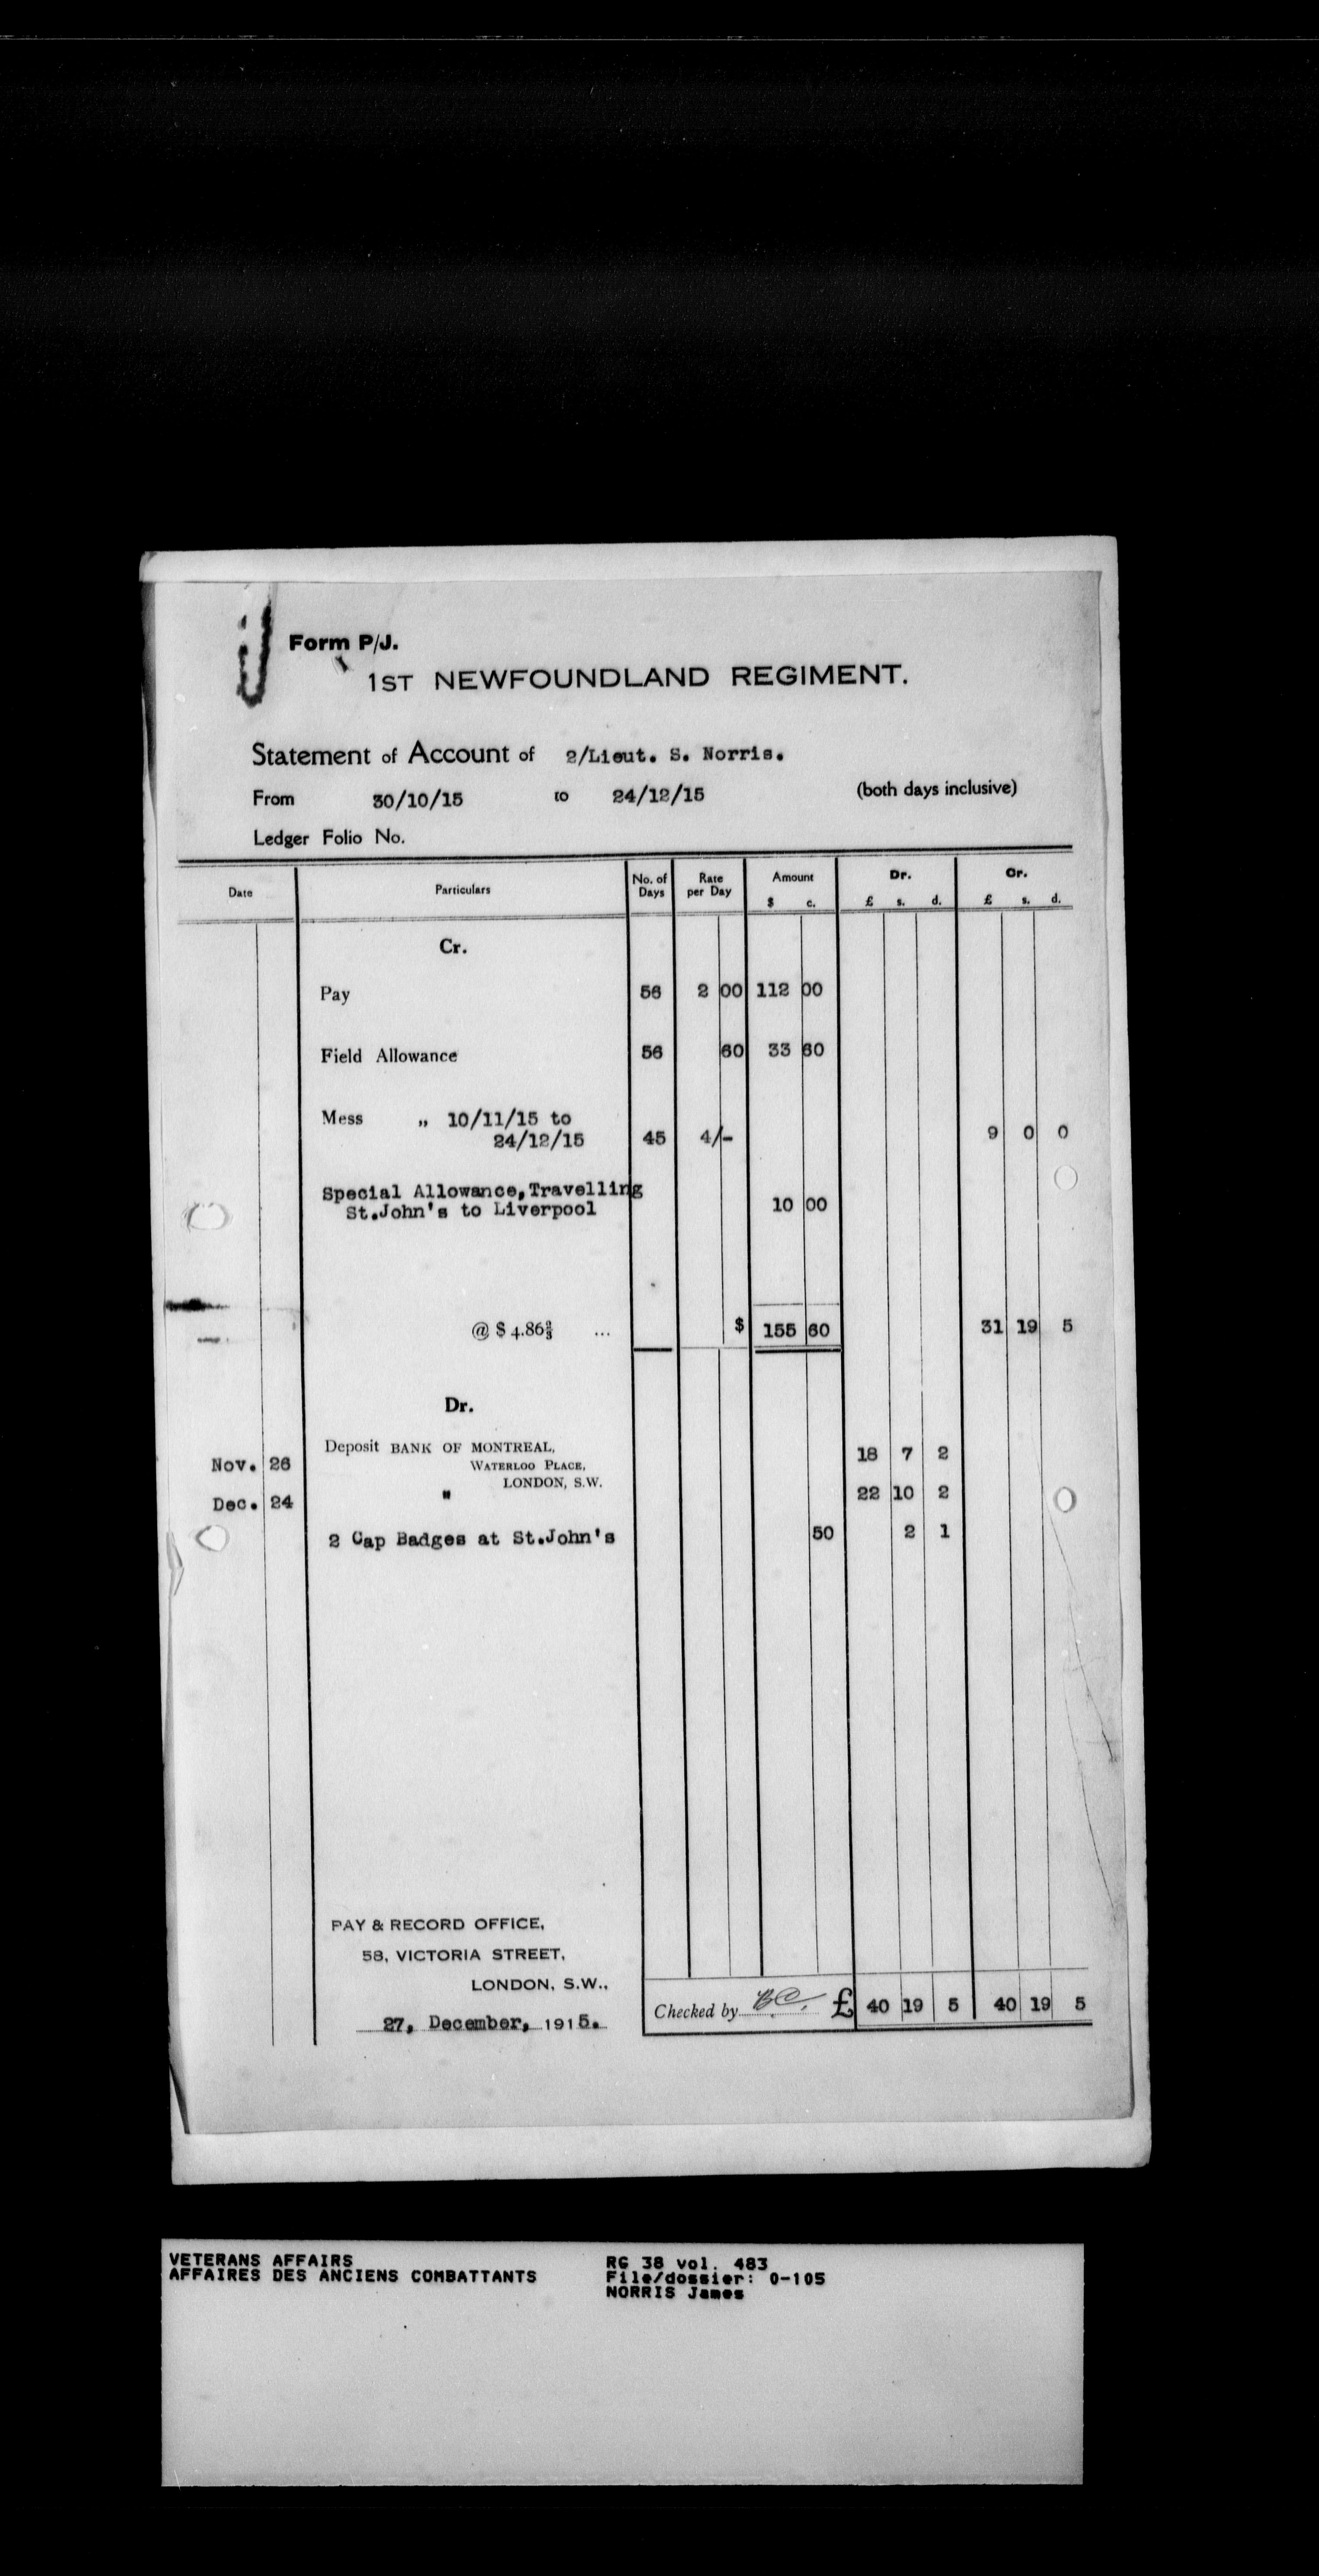 Form P/J.
1ST NEWFOUNDLAND REGIMENT.
Statement of Account of 2/Lieut. S. Norris.
From 30/10/15 to 24/12/15 (both days inclusive)
Ledger Folio No.
Date Particulars No. of Days Rate per Day Amount $ c. Dr. £ s. d. Cr. £ s. d.
Cr.
Pay 56 2 00 112 00
Field Allowance 56 60 33 60
Mess „ 10/11/15 to
24/12/15 45 4/- 9 0 0
Special Allowance,Travelling
St.John's to Liverpool 10 00
@ $ 4.86⅔ ... $ 155 60 31 19 5
Dr.
Deposit BANK OF MONTREAL,
Nov. 26 WATERLOO PLACE, 18 7 2
LONDON, S.W.
Dec. 24 " 22 10 2
2 Cap Badges at St.John's 50 2 1
PAY & RECORD OFFICE,
58, VICTORIA STREET,
LONDON, S.W.,
27, December, 1915.
Checked by B.C. £ 40 19 5 40 19 5
VETERANS AFFAIRS
AFFAIRES DES ANCIENS COMBATTANTS
RG 38 vol. 483
File/dossier: 0-105
NORRIS James